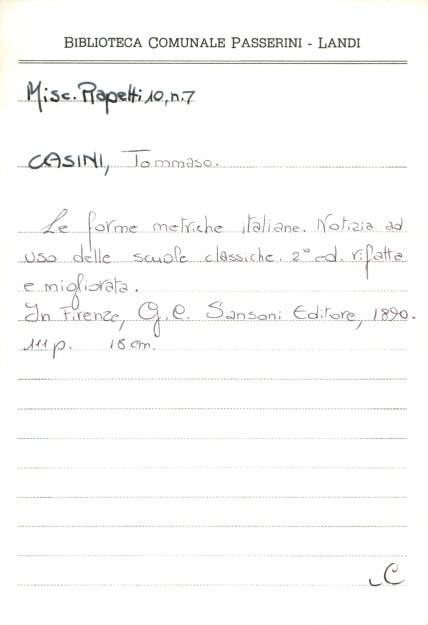 BIBLIOTECA COMUNALE PASSERINI - LANDI
Misc. Rapetti 10, n. 7
CASINI, Tommaso.
Le forme metriche italiane. Notizia ad
uso delle scuole classiche. 2° ed. rifatta
e migliorata.
In Firenze, G. C. Sansoni Editore, 1890.
111 p. 18 cm.
C